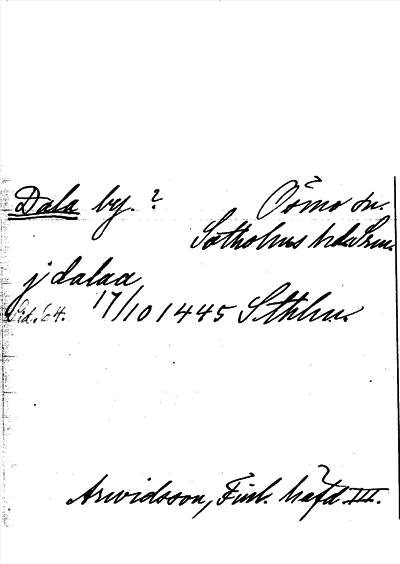 Dala by. ? Ösmo sn.
Sotholms hd Srm.
j dalaa
Sid. 64. 17/10 1445 Sthlm.
Arwidsson, Finl. häfd III.